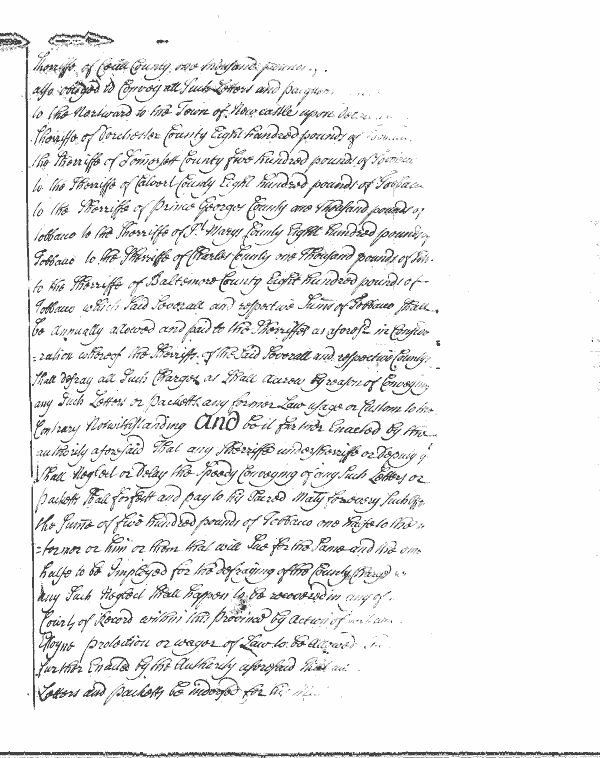 Sherriffe of Cecill County, one thousand pounds
also obliged to Convey all Such Letters and pacquetts
to the Norward to the Town of New castle upon
Sherriffe of Dorchester County Eight hundred pounds of
the Sherriffe of Somersett County five hundred pounds of Tobacco
to the Sherriffe of Calvert County Eight hundred pounds of Tobacco
to the Sherriffe of Prince Georges County one thousand pounds of
tobbaco to the Sherriffe of St. Marys County Eight hundred pounds of
Tobbaco to the Sherriffe of Charles County one Thousand pounds of
to the Sherriffe of Baltemore County Eight hundred pounds of
Tobbaco which Said Severall and respective Sums of Tobbaco Shall
be annually alowed and paid to the Sherriffes as aforesd. in Conside
=ration whereof the Sherriffs of the Said Severall and respective County
Shall defray all Such Charges as Shall accrew by reason of Conveying
any Such Letters or packetts any former Law usage or Custom to the
Contrary Notwithstanding And be it further Enacted by the
authority aforesaid That any Sherriffe undersherriffe or Deputy
Shall Neglect or Delay the Speedy Conveying of any Such Letters or
packett Shall forfeit and pay to his Sacred Maty for every Such
the Sume of five hundred pounds of Tobbaco one halfe to the
=former or him or them that will Sue for the Same and the
halfe to be Imployed for the defraying of the County Charge
any Such Neglect Shall happen to be recovered in any of
Courts of Record within this Province by Action of
Essoyne protection or wager of Law to be Allowed
further Enacted by the Authority aforesaid that
Letters and packetts be indorsed for his